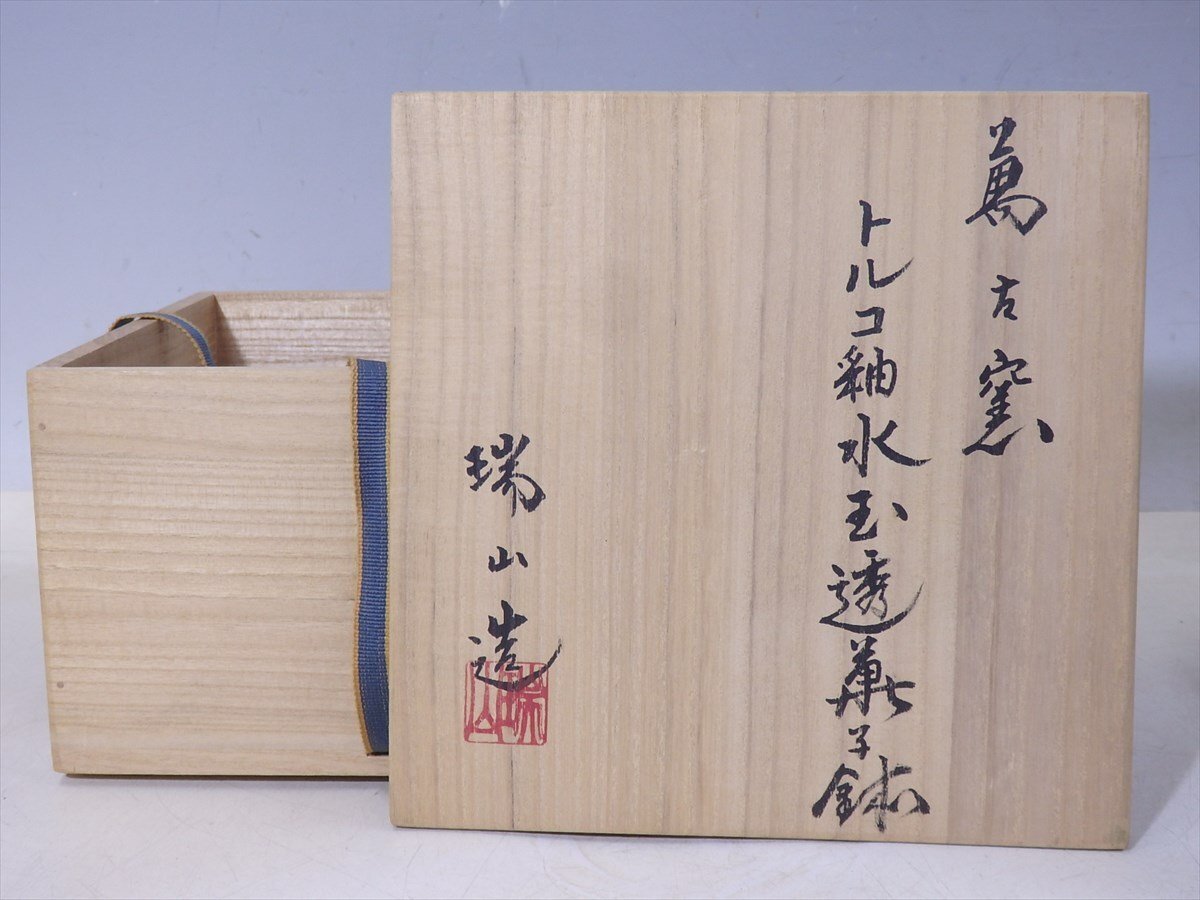 萬古窯
トルコ釉水玉透菓子鉢
瑞山造
瑞山